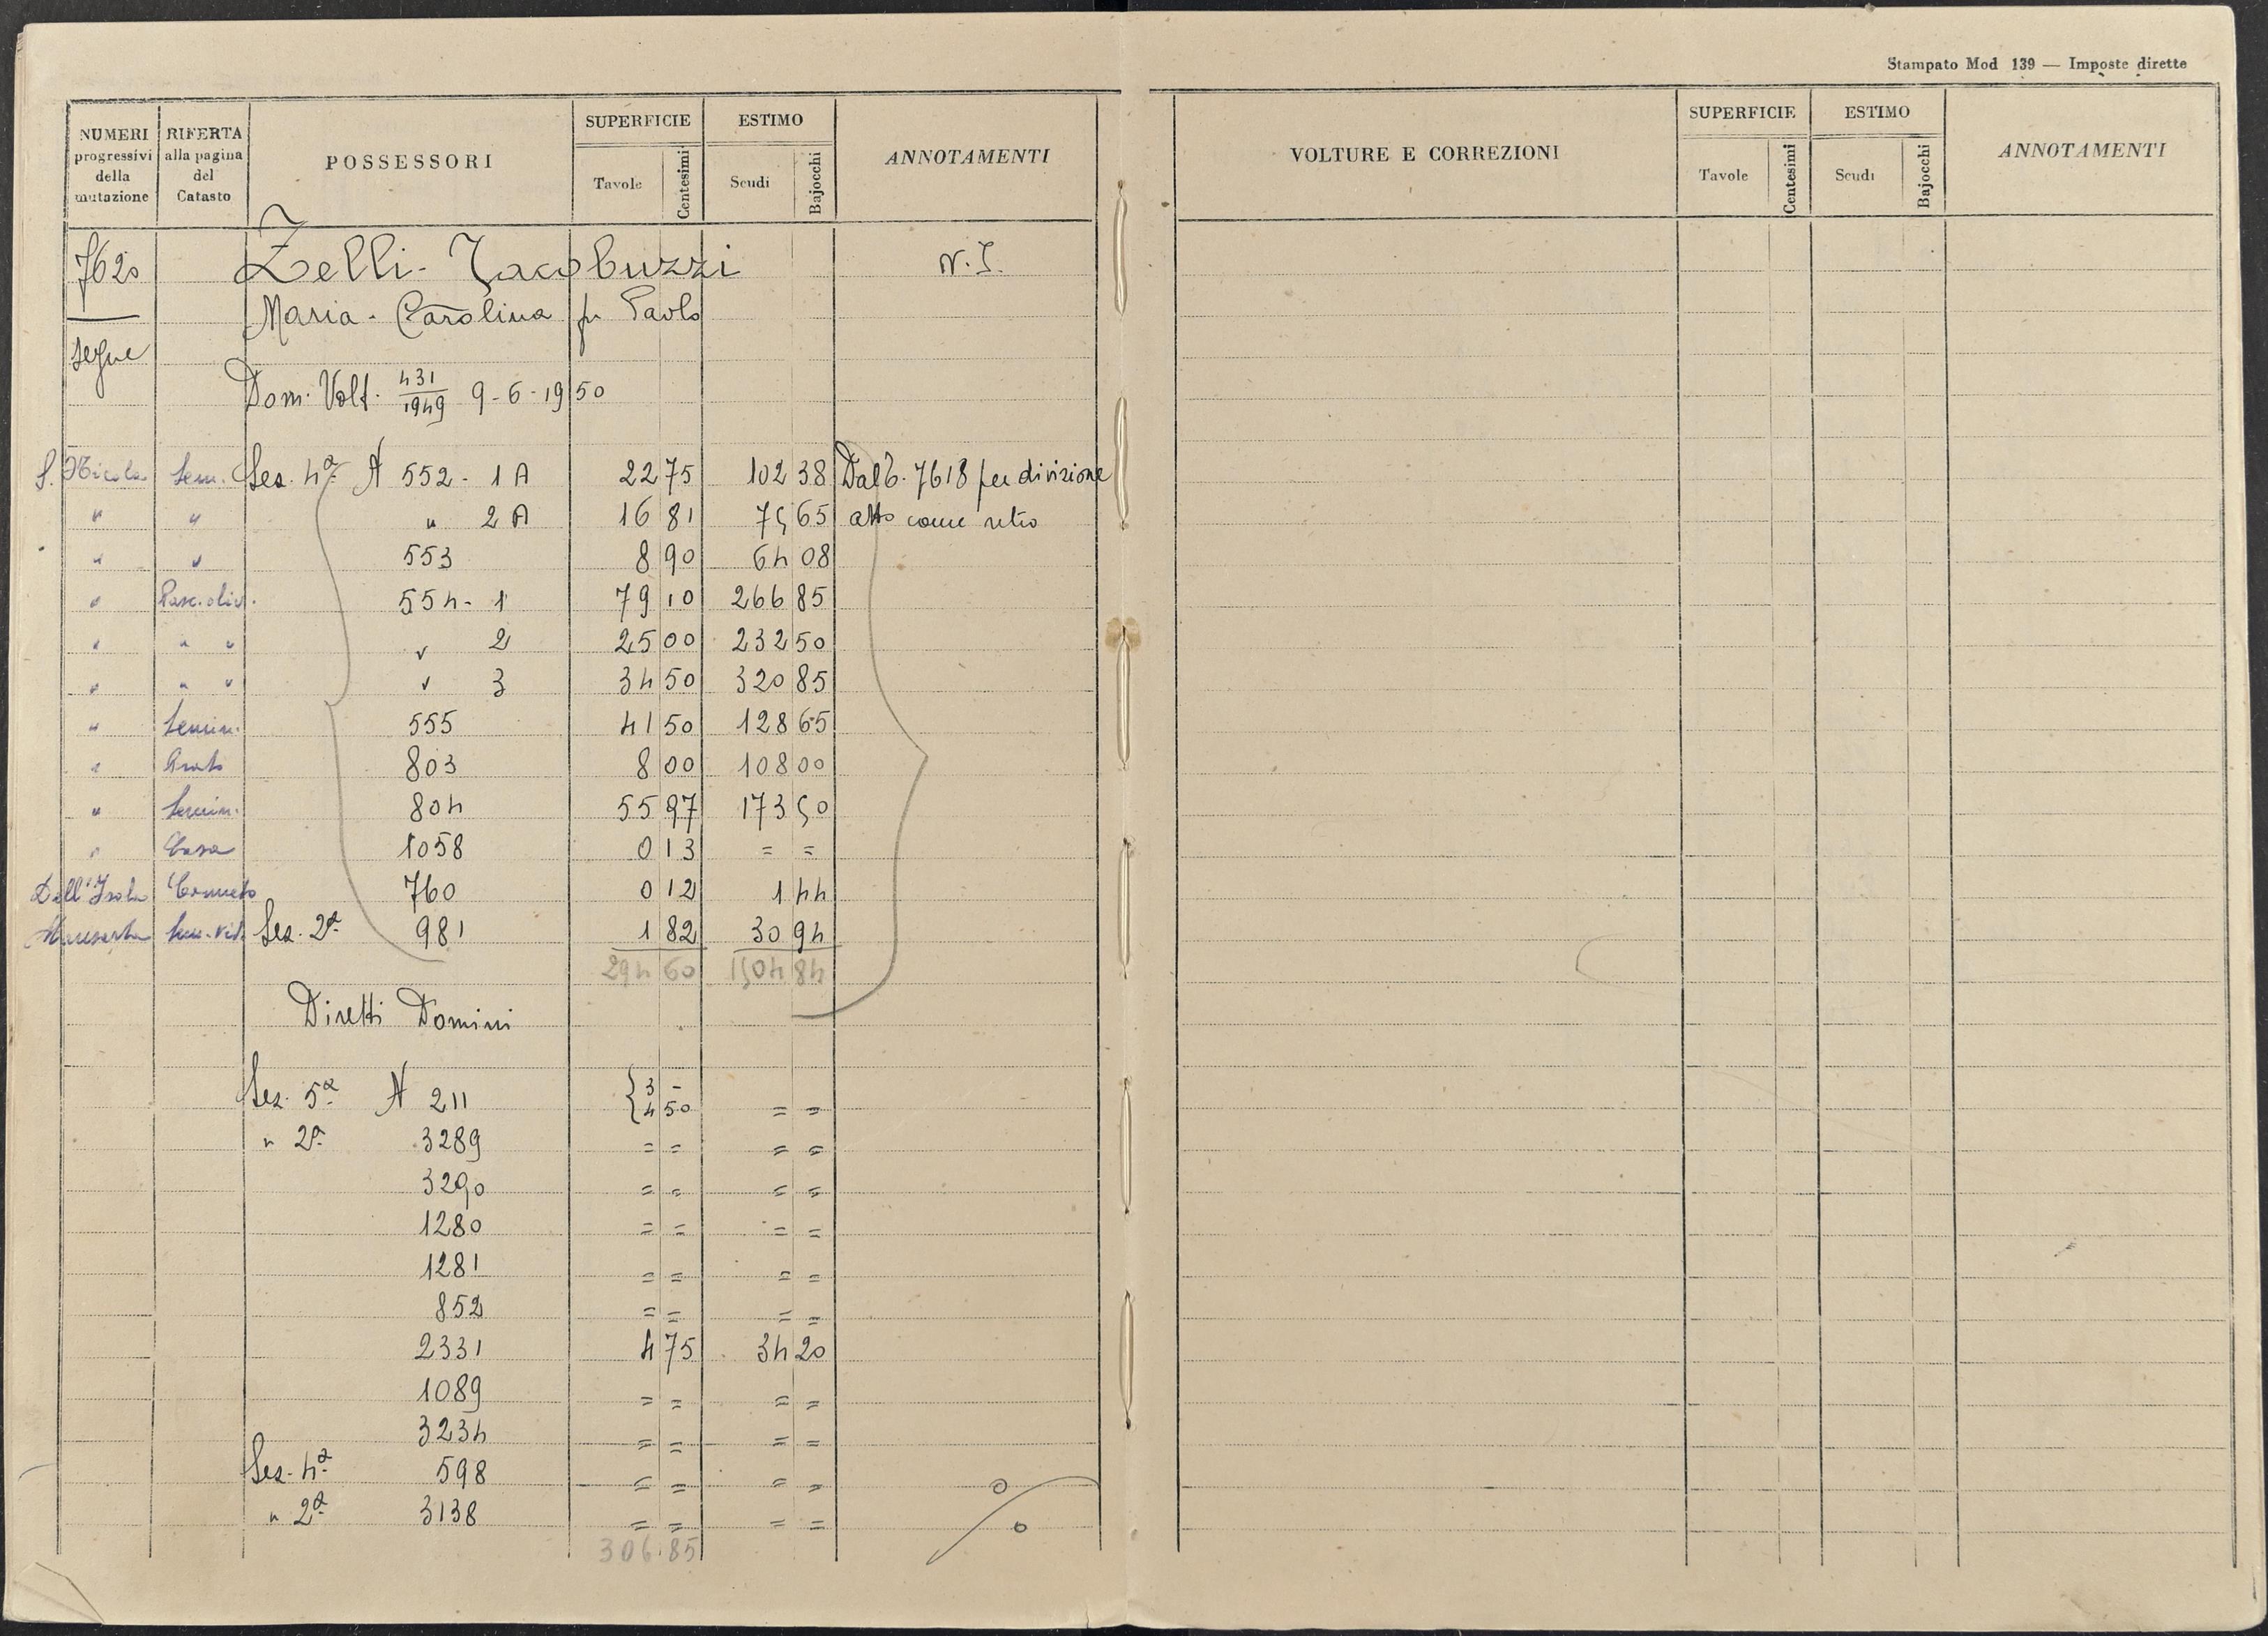 Stampato Mod 139 — Imposte dirette
NUMERI progressivi della mutazione
RIFERTA alla pagina del Catasto
POSSESSORI
SUPERFICIE
Tavole Centesimi
ESTIMO
Scudi Bajocchi
ANNOTAMENTI
VOLTURE E CORREZIONI
SUPERFICIE
Tavole Centesimi
ESTIMO
Scudi Bajocchi
ANNOTAMENTI
7620 Zelli-Jacobuzzi N.I.
Maria-Carolina fu Paolo
segue
Dom. Volt. 431/1949 9-6-1950
S. Nicola Sem. Sez. 4ª A 552 - 1A 22 75 102 38 Dal 6. 7618 per divisione
" " " 2A 16 81 75 65 atto come retro
" " 553 8 90 64 08
" Pasc. oliv. 554 - 1 79 10 266 85
" " " " 2 25 00 232 50
" " " " 3 34 50 320 85
" Semin. 555 41 50 128 65
" Prato 803 8 00 108 00
" Semin. 804 55 97 173 50
" Casa 1058 0 13 = =
Dell'Isola Canneto 760 0 12 1 44
Sem. vit. Sez. 2ª 981 1 82 30 94
294 60 1504 84
Diretti Domini
Sez. 5ª A 211 { 3 -
4 50 = =
" 2ª 3289 = = = =
3290 = = = =
1280 = = = =
1281 = = = =
852 = = = =
2331 4 75 34 20
1089 = = = =
3234 = = = =
Sez. 4ª 598 = = = =
" 2ª 3138 = = = =
306 85